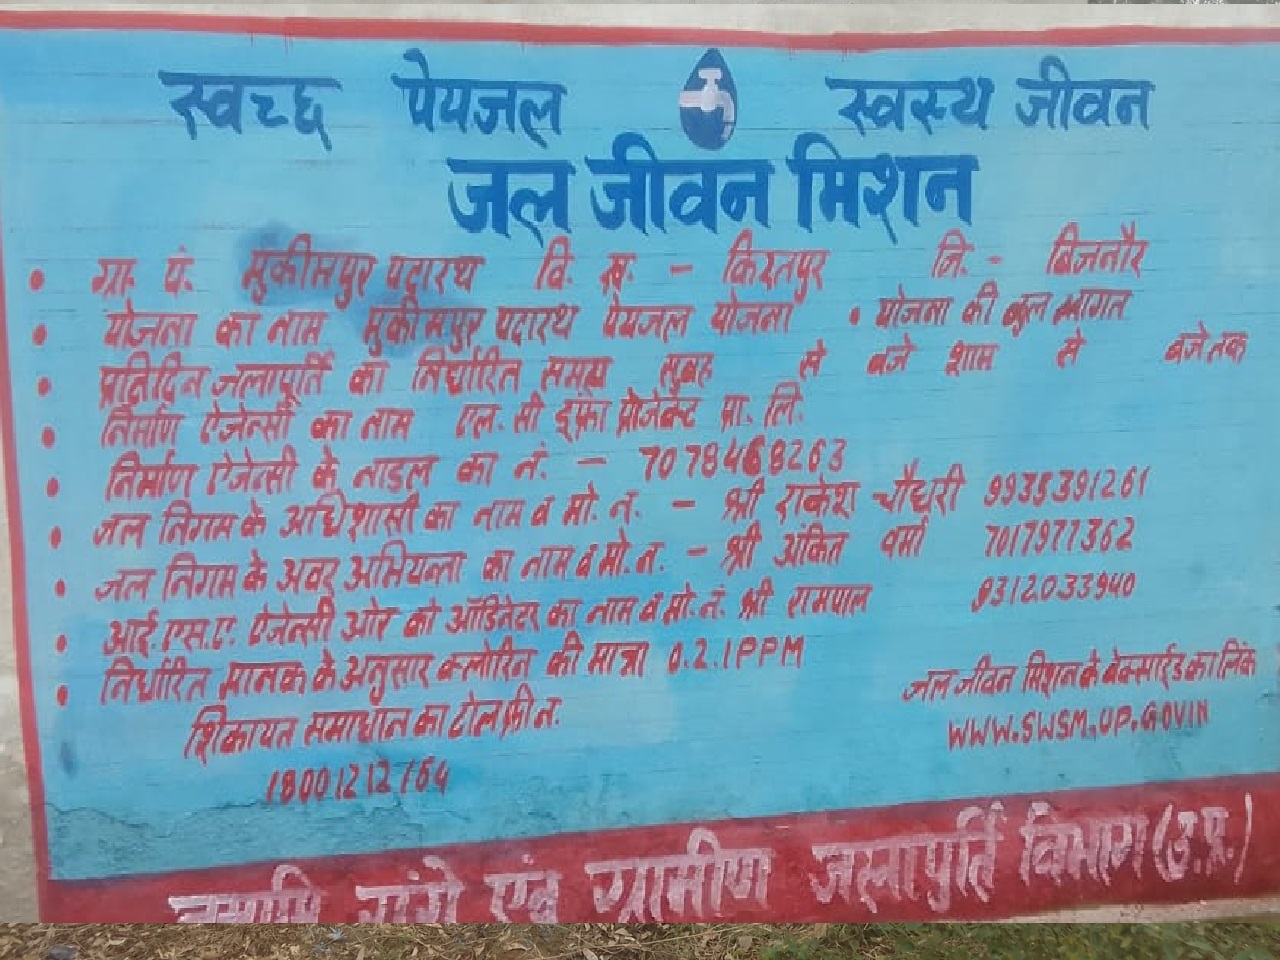 स्वच्छ पेयजल स्वस्थ जीवन
जल जीवन मिशन
• ग्रा. पं. मुकीमपुर पदारथ वि. ख. - किरतपुर जि. - बिजनौर
• योजना का नाम मुकीमपुर पदारथ पेयजल योजना • योजना की कुल लागत
• प्रतिदिन जलापूर्ति का निर्धारित समय सुबह से बजे शाम से बजे तक
• निर्माण ऐजेन्सी का नाम एल. सी इंफ्रा प्रोजेक्ट प्रा. लि.
• निर्माण ऐजेन्सी के नाडल का नं. - 7078468263
• जल निगम के अधिशासी का नाम व मो. न. - श्री राकेश चौधरी 9935391261
• जल निगम के अवर अभियन्ता का नाम व मो. न. - श्री अंकित वर्मा 7017977362
• आई. एस. ए. ऐजेन्सी ओर को ऑडिनेटर का नाम व मो. नं. श्री रामपाल 9312033940
• निर्धारित मानक के अनुसार क्लोरिन की मात्रा 0.2.1PPM
शिकायत समाधान का टोल फ्री न.
18001212164
जल जीवन मिशन के वेक्साईड का लिंक
WWW.SWSM.UP.GOVIN
नमामि गंगे एंव ग्रामीण जलापुर्ति विभाग (उ.प्र.)